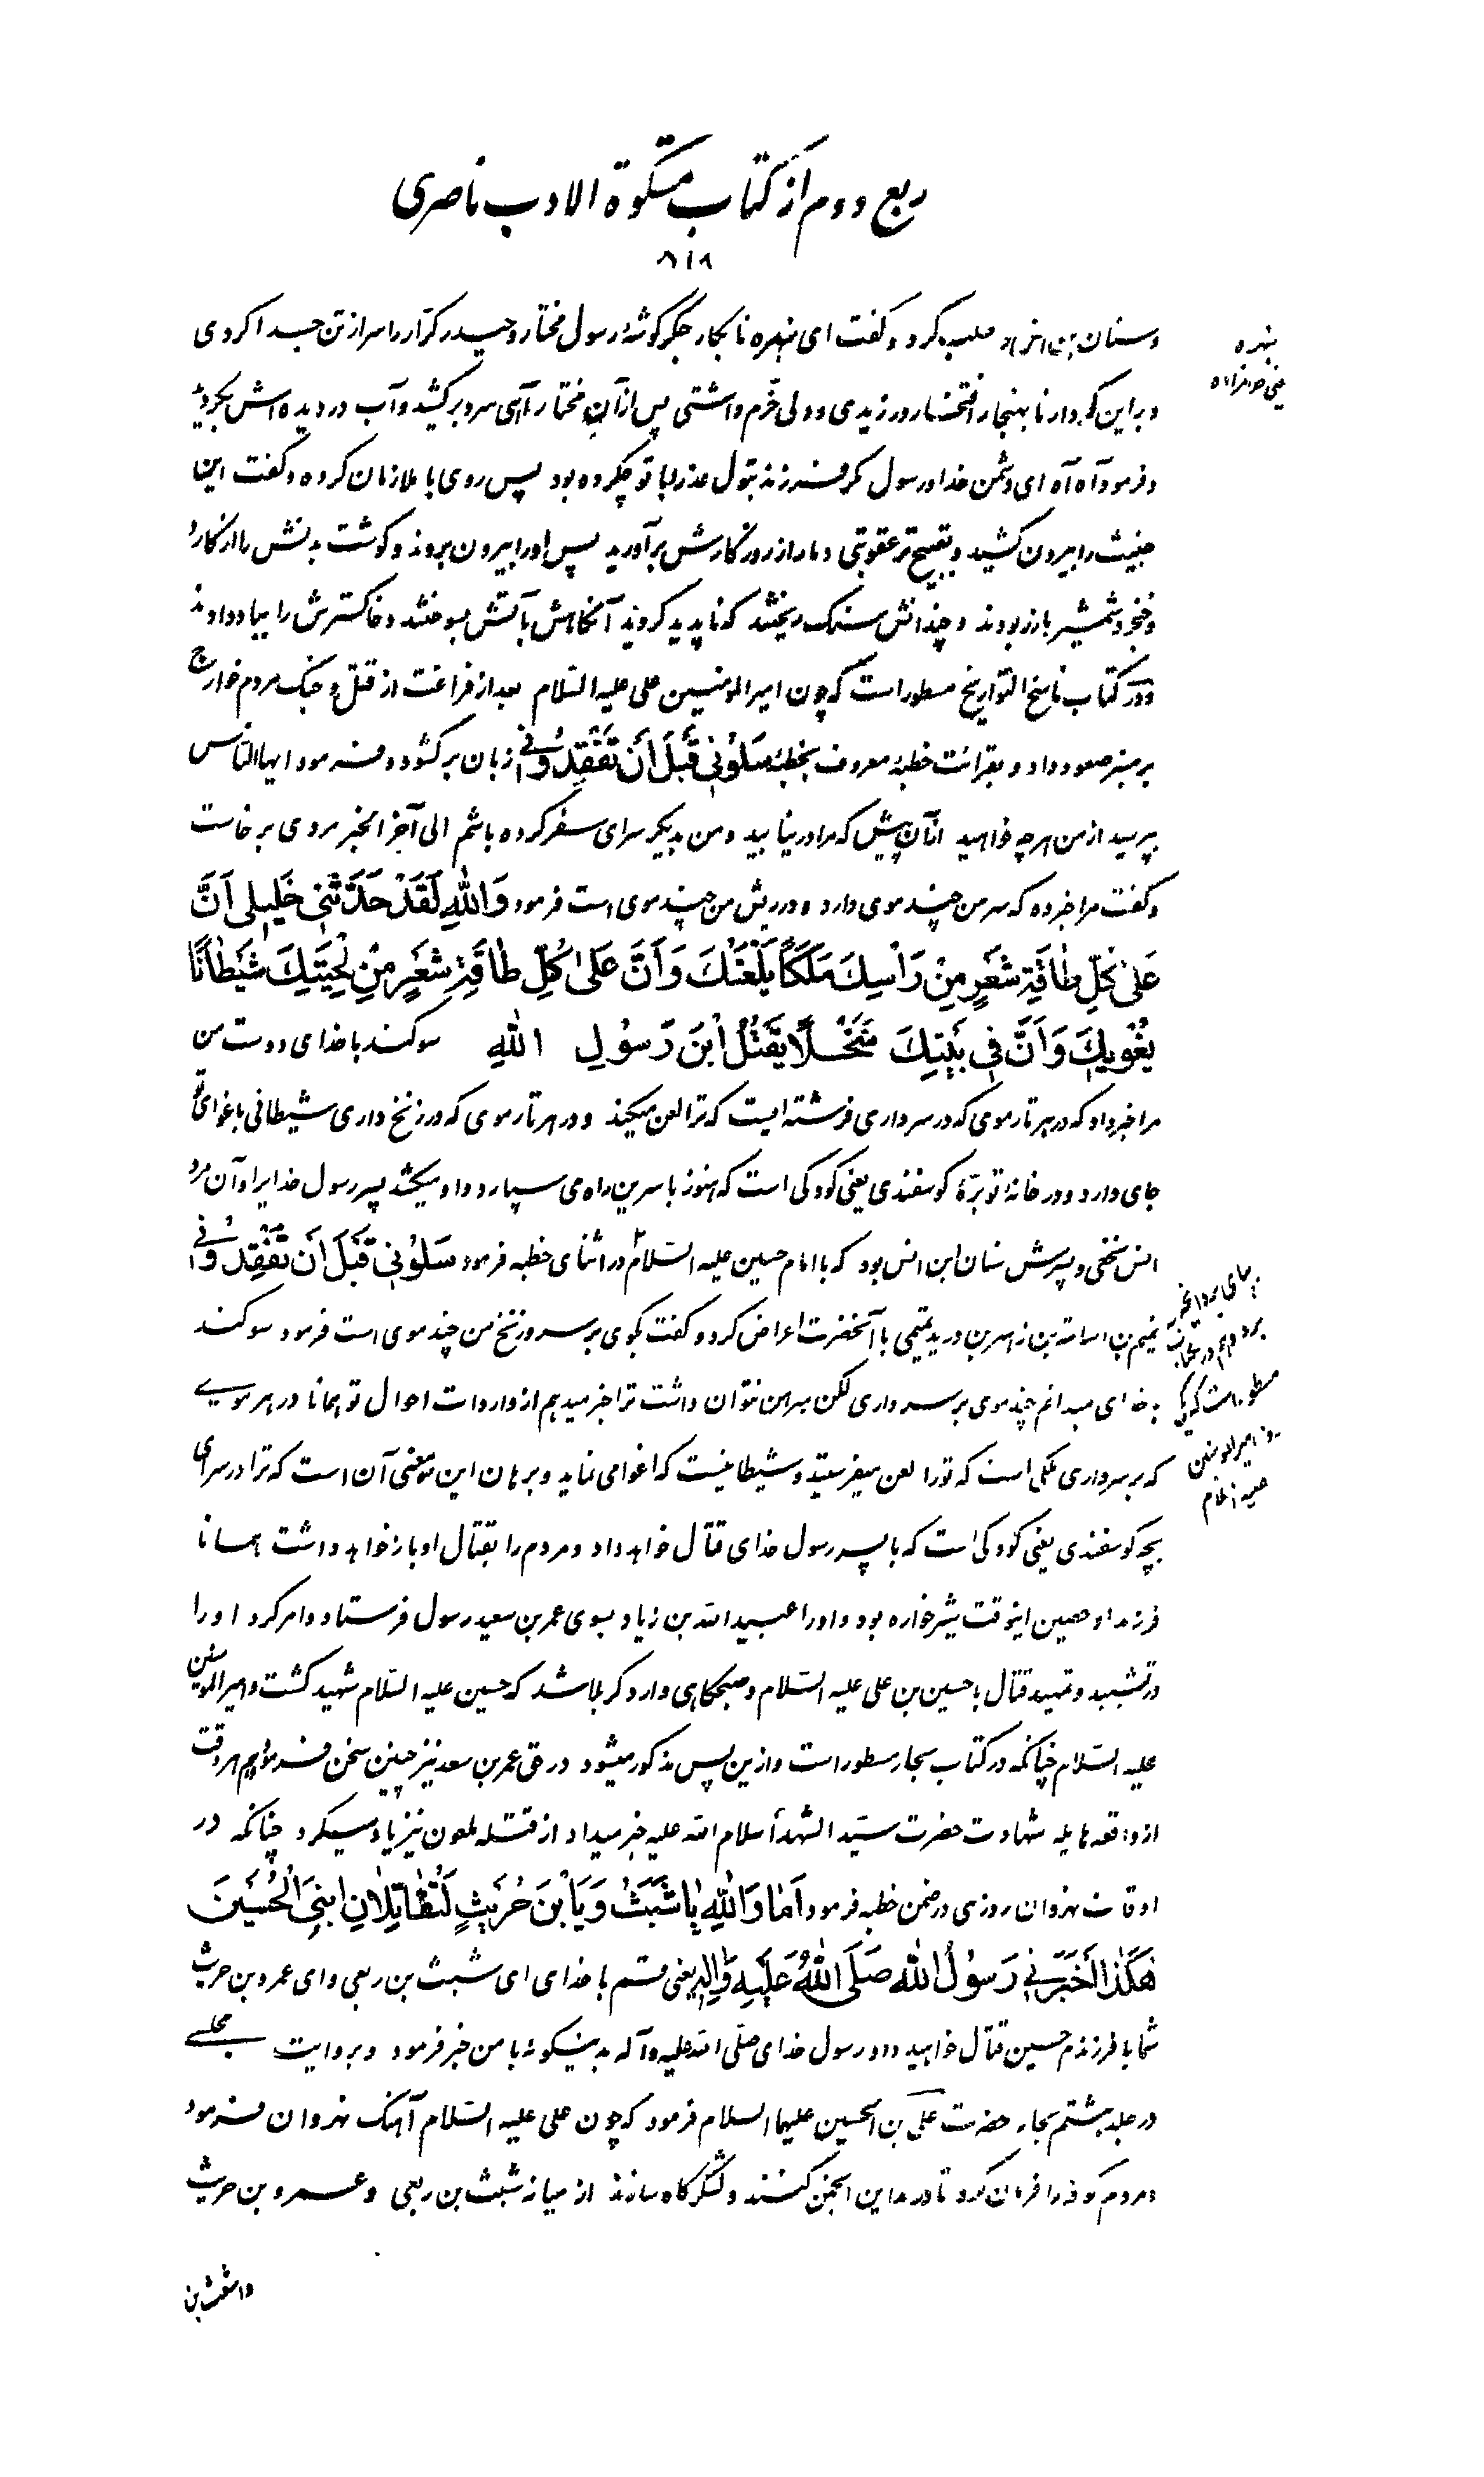 ربع دوم از کتاب مشکوة الادب ناصری
۸۱۸
و سنان بن انس را طلب کرد و گفت ای بنهره نابکار جگرگوشه رسول مختار و حیدر کرار را سر از تن جدا کردی
بنهره
یعنی حرامزاده
و براین کردار نابهنجار افتخار ورزیدی و دلی خرم داشتی پس از آن مختار آهی سرد برکشید و آب در دیده اش بگردید
و فرمود آه آه ای دشمن خدا و رسول مگر فرزند بتول عذرا با تو چکرده بود پس روی با ملازمان کرده و گفت این
خبیث را بیرون کشید و بقبیح تر عقوبتی دمار از روزگارش برآورید پس او را بیرون بردند و گوشت بدنش را از کارد
و خنجر و شمشیر باز ربودند و چندانش سنگ ریختند که ناپدید کردند آنگاهش بآتش بسوختند و خاکسترش را بباد دادند
و در کتاب ناسخ التواریخ مسطور است که چون امیر المؤمنین علی علیه السلام بعد از فراغت از قتل و جنگ مردم خوارج
بر منبر صعود داد و بقرائت خطبه معروف بخطبه سَلُونی قَبلَ اَن تَفقِدُونی زبان برگشود و فرمود ایها الناس
بپرسید از من هرچه خواهید از آن پیش که مرا در نیابید و من بدیگر سرای سفر کرده باشم الی آخر الخبر مردی برخاست
و گفت مرا خبر ده که سر من چند موی دارد و در ریش من چند موی است فرمود وَاللهِ لَقَد حَدَّثَنی خَلیلی اَنَّ
عَلی کُلِّ طاقَةِ شَعرٍ مِن رَاسِکَ مَلَکًا یَلعَنُکَ وَاَنَّ عَلی کُلِّ طاقَةِ شَعرٍ مِن لِحیَتِکَ شَیطانًا
یُغویکَ وَاَنَّ فی بَیتِکَ سَخلًا یَقتُلُ ابنَ رَسُولِ اللهِ سوگند با خدای دوست من
مرا خبر داد که در هر تار موی که در سر داری فرشته ایست که ترا لعن میکند و در هر تار موی که در زنخ داری شیطانی باغوای تو
جای دارد و در خانه تو بره گوسفندی یعنی کودکی است که هنوز با سرین راه می سپارد و او میکشد پسر رسول خدایرا و آن مرد
انس نخعی و پسرش سنان ابن انس بود که با امام حسین علیه السلام در اثنای خطبه فرمود سَلُونی قَبلَ اَن تَفقِدُونی
تمیم بن اسامة بن زهیر بن درید تمیمی با آنحضرت اعراض کرد و گفت بگوی بر سر و زنخ من چند موی است فرمود سوگند
بجای بردم
و هم در کتاب
مسطور است که یکی
روز امیر المومنین
علیه السلام
بخدای میدانم چند موی بر سر داری لکن مبرهن نتوان داشت ترا خبر میدهم از واردات احوال تو همانا در هر موییے
که بر سر داری ملکی است که تو را لعن میفرستد و شیطانیست که اغوا می نماید و برهان این معنی آن است که ترا در سرای
بچه گوسفندی یعنی کودکی است که با پسر رسول خدای قتال خواهد داد و مردم را بقتال او باز خواهد داشت همانا
فرزند او حصین اینوقت شیرخواره بود و او را عبید الله بن زیاد بسوی عمر بن سعید رسول فرستاد و امر کرد او را
در تشیید و تمهید قتال با حسین بن علی علیه السلام و صبحگاهی وارد کربلا شد که حسین علیه السلام شهید گشت و امیر المومنین
علیه السلام چنانکه در کتاب بحار مسطور است و ازین پس مذکور میشود در حق عمر بن سعد نیز چنین سخن فرمود و هم هر وقت
از واقعه هایله شهادت حضرت سید الشهداء سلام الله علیه خبر میداد از قتله ملعون نیز یاد میکرد چنانکه در
اوقات نهروان روزی در ضمن خطبه فرمود اَما وَاللهِ یا شَبَثُ وَیَا بنَ حُرَیثٍ لَتُقاتِلانِ ابنِیَ الحُسَینَ
هکَذا اَخبَرَنی رَسُولُ اللهِ صَلَّی اللهُ عَلَیهِ وَالِهِ یعنی قسم با خدای ای شبث بن ربعی و ای عمرو بن حریث
شما با فرزندم حسین قتال خواهید داد رسول خدای صلی الله علیه وآله بدینگونه با من خبر فرمود و بروایت مجلسے
در جلد هشتم بحار حضرت علی بن الحسین علیهما السلام فرمود که چون علی علیه السلام آهنگ نهروان فرمود
و مردم کوفه را فرمان کرد تا در مداین انجمن کنند و لشگرگاه سازند از میانه شبث بن ربعی و عمرو بن حریث
و اشعث بن